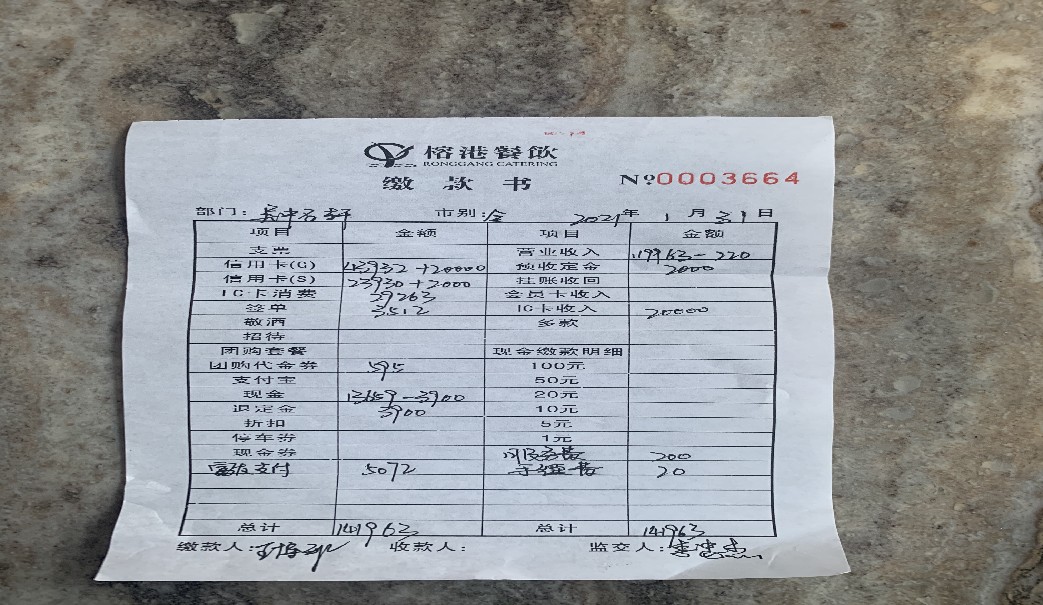 榕港餐飲
RONGGANG CATERING
缴款书 №0003664
部门: 市别: 全 2021年1月31日
项目 金额 项目 金额
支票 营业收入 119963-220
信用卡(G) 43932+20000 预收定金 2000
信用卡(S) 23930+2000 挂账收回
IC卡消费 29263 会员卡收入
签单 3512 IC卡收入 20000
敬酒 多款
招待
团购套餐 现金缴款明细
团购代金券 595 100元
支付宝 50元
现金 13659-3900 20元
退定金 3900 10元
折扣 5元
停车券 1元
现金券 服务费 200
支付 5072 手续费 20
总计 141963 总计 141963
缴款人: 收款人: 监交人: